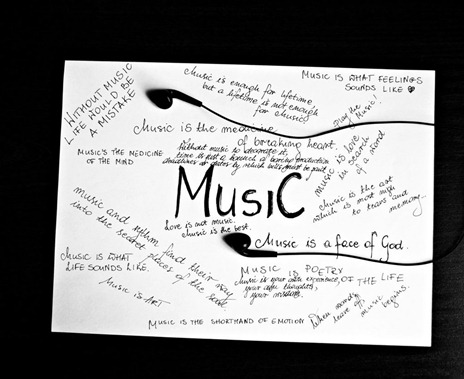 WITHOUT MUSIC
LIFE WOULD BE
A MISTAKE
Music is enough for lifetime,
but a lifetime is not enough
for music
MUSIC IS WHAT FEELINGS
SOUNDS LIKE ♥
Play the
Music!
Music is the medicine
of breaking heart.
MUSIC'S THE MEDICINE
OF THE MIND
Without music to decorate it,
time is just a bunch of boring production
deadlines or dates by which bills must be paid
music is love
in search
of a word
Music is the art
which is most nigh
to tears and
memory
MUSIC
music and rythm find their way
into the secret places of the soul
Love is not music.
Music is the best.
Music is a face of God.
MUSIC IS WHAT
LIFE SOUNDS LIKE.
MUSIC IS POETRY
OF THE LIFE
Music is your own experience,
your own thoughts,
your wisdom.
MUSIC IS ART
MUSIC IS THE SHORTHAND OF EMOTION
When words
leave off
music begins.